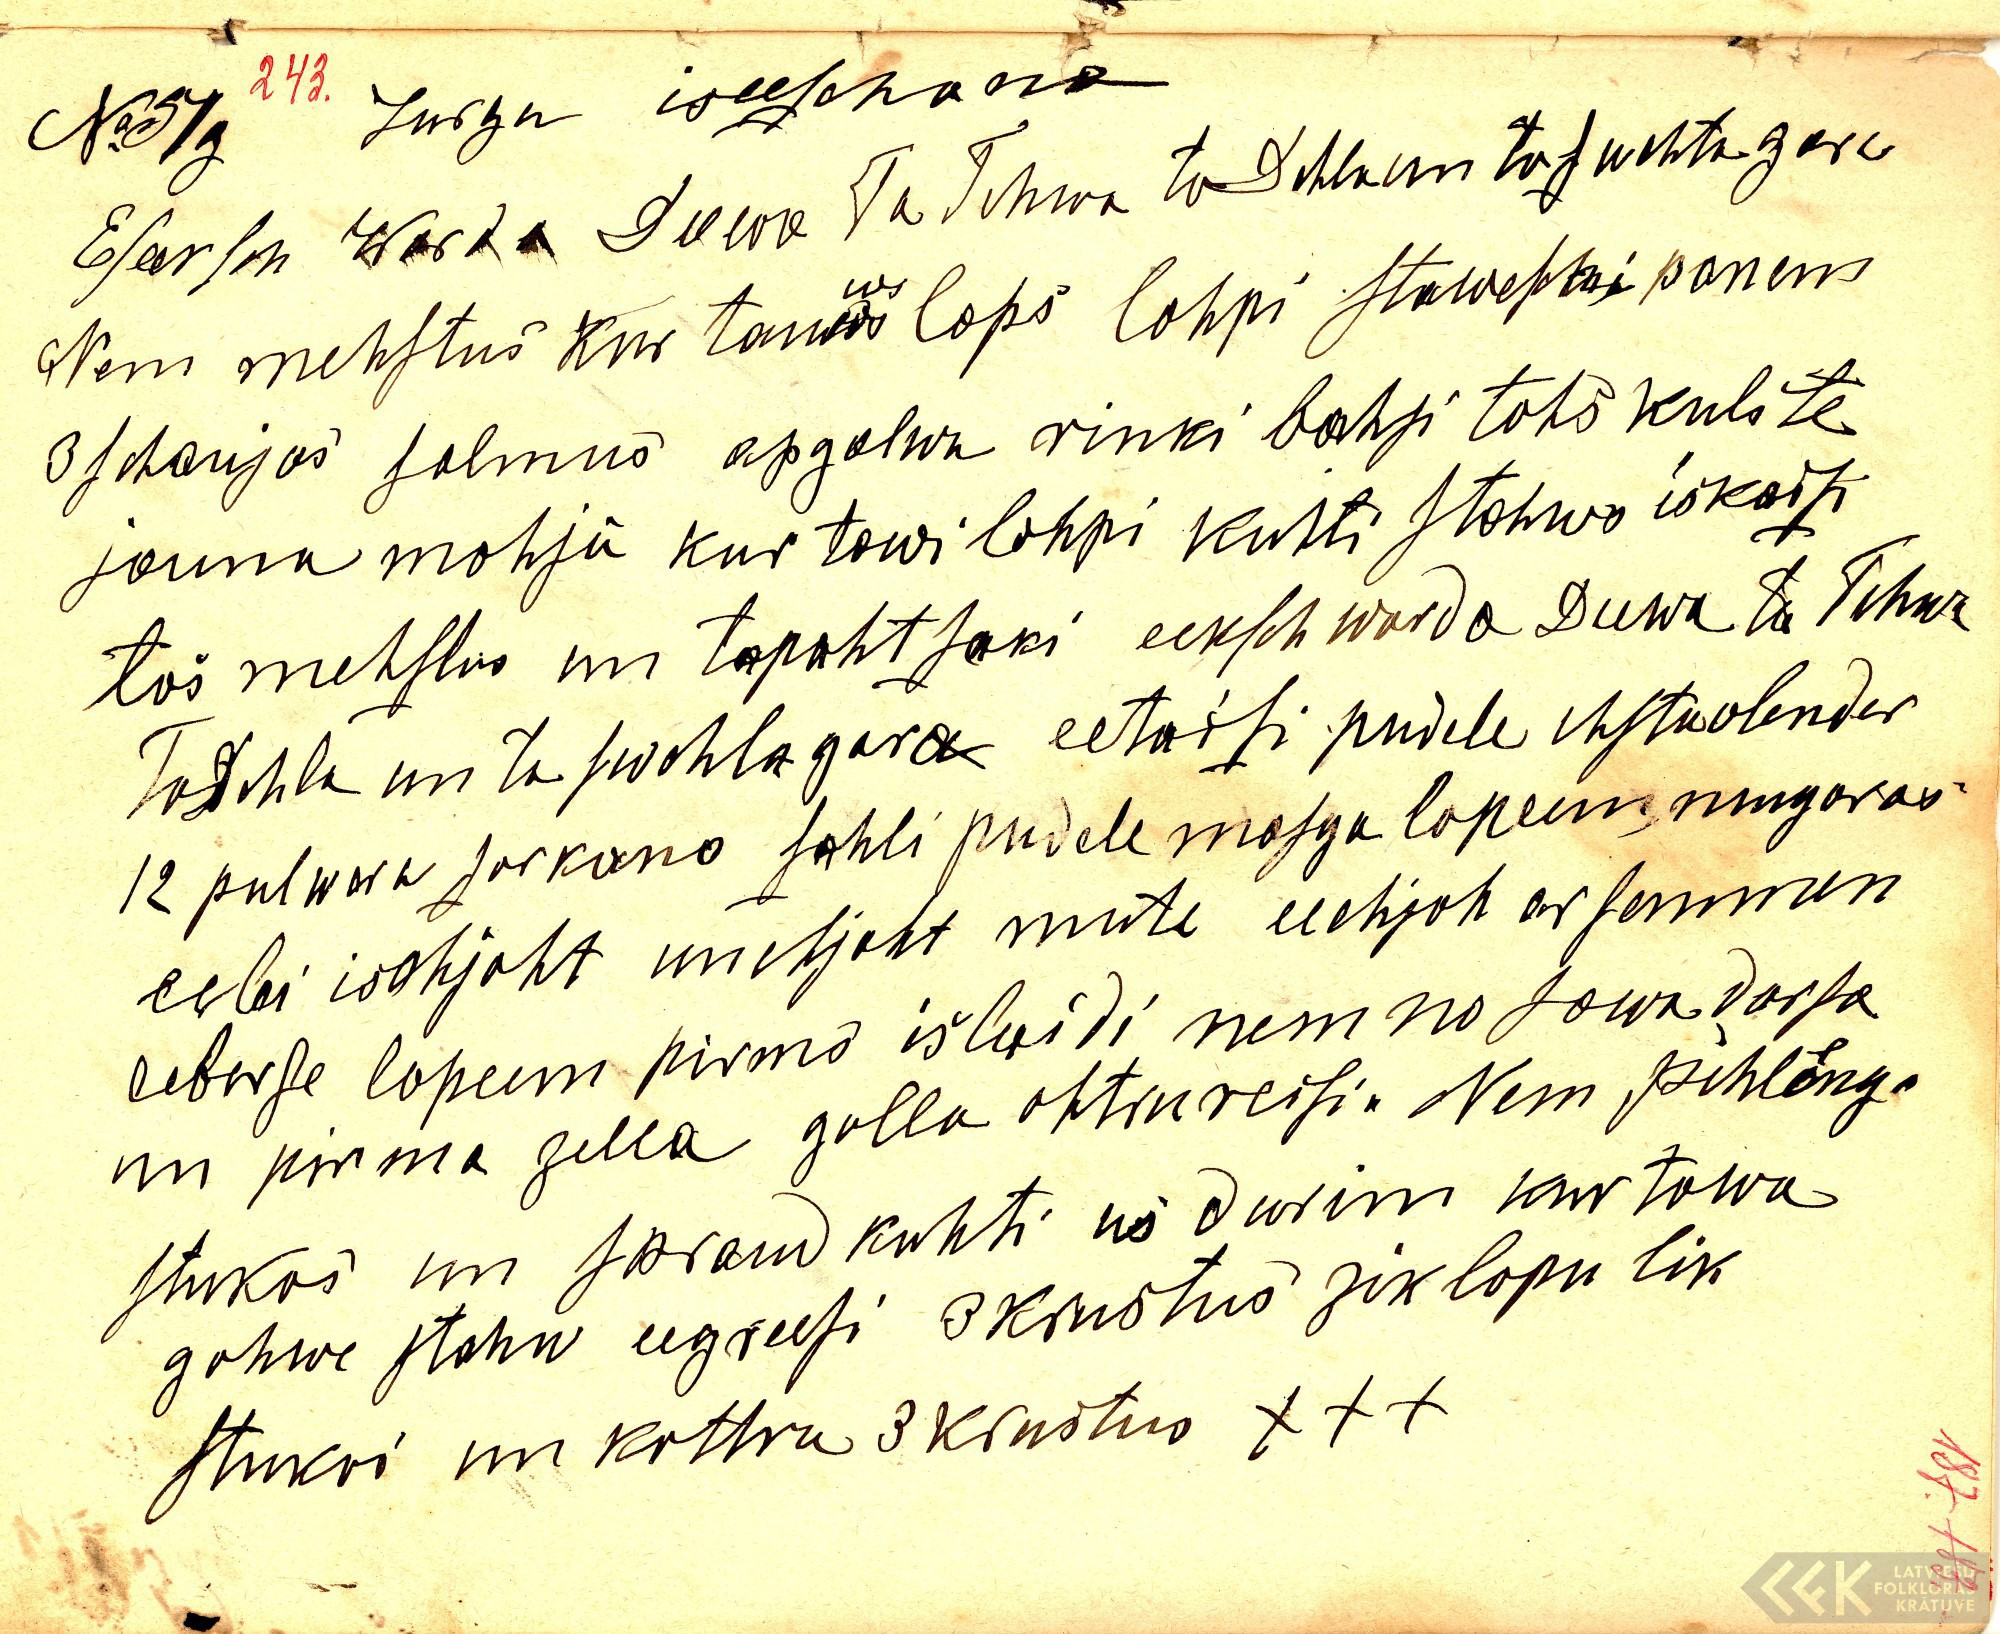 243.
Jurgu iseeschana
Eeksch Warda Deewa Ta Tehwa ta Dehla un ta swehta gara
Nem mehslus kur taws lops lohpi stawejuschi panem
3 schaujas salmus apgalwa rinki bahsi tohs kulste
jauna mohja kur tawi lohpi kuhti stahws iskaisi
tos mehslus un tapaht saki eeksch warda Deewa ta Tehwa
Ta Dehla un ta swehta gara eetaisi pudele ehsta olender
12 pulwera sarkano sahli pudele masga lopeem mugaras
eelei isehjoht un ehjoht mute eeehjoh ar semmen
eeberse lopeem pirms islaidi nem no sawa darsa
un pirma zella galla ohtru reisi. Nem pihlang.
stukas un spraud kuhti us durim kur tawa
gohwe stahw eegreesi 3 krustus zik lopu lik
stukai un kattra 3 krustus + + +
LATVIEŠU
FOLKLORAS
KRĀTUVE